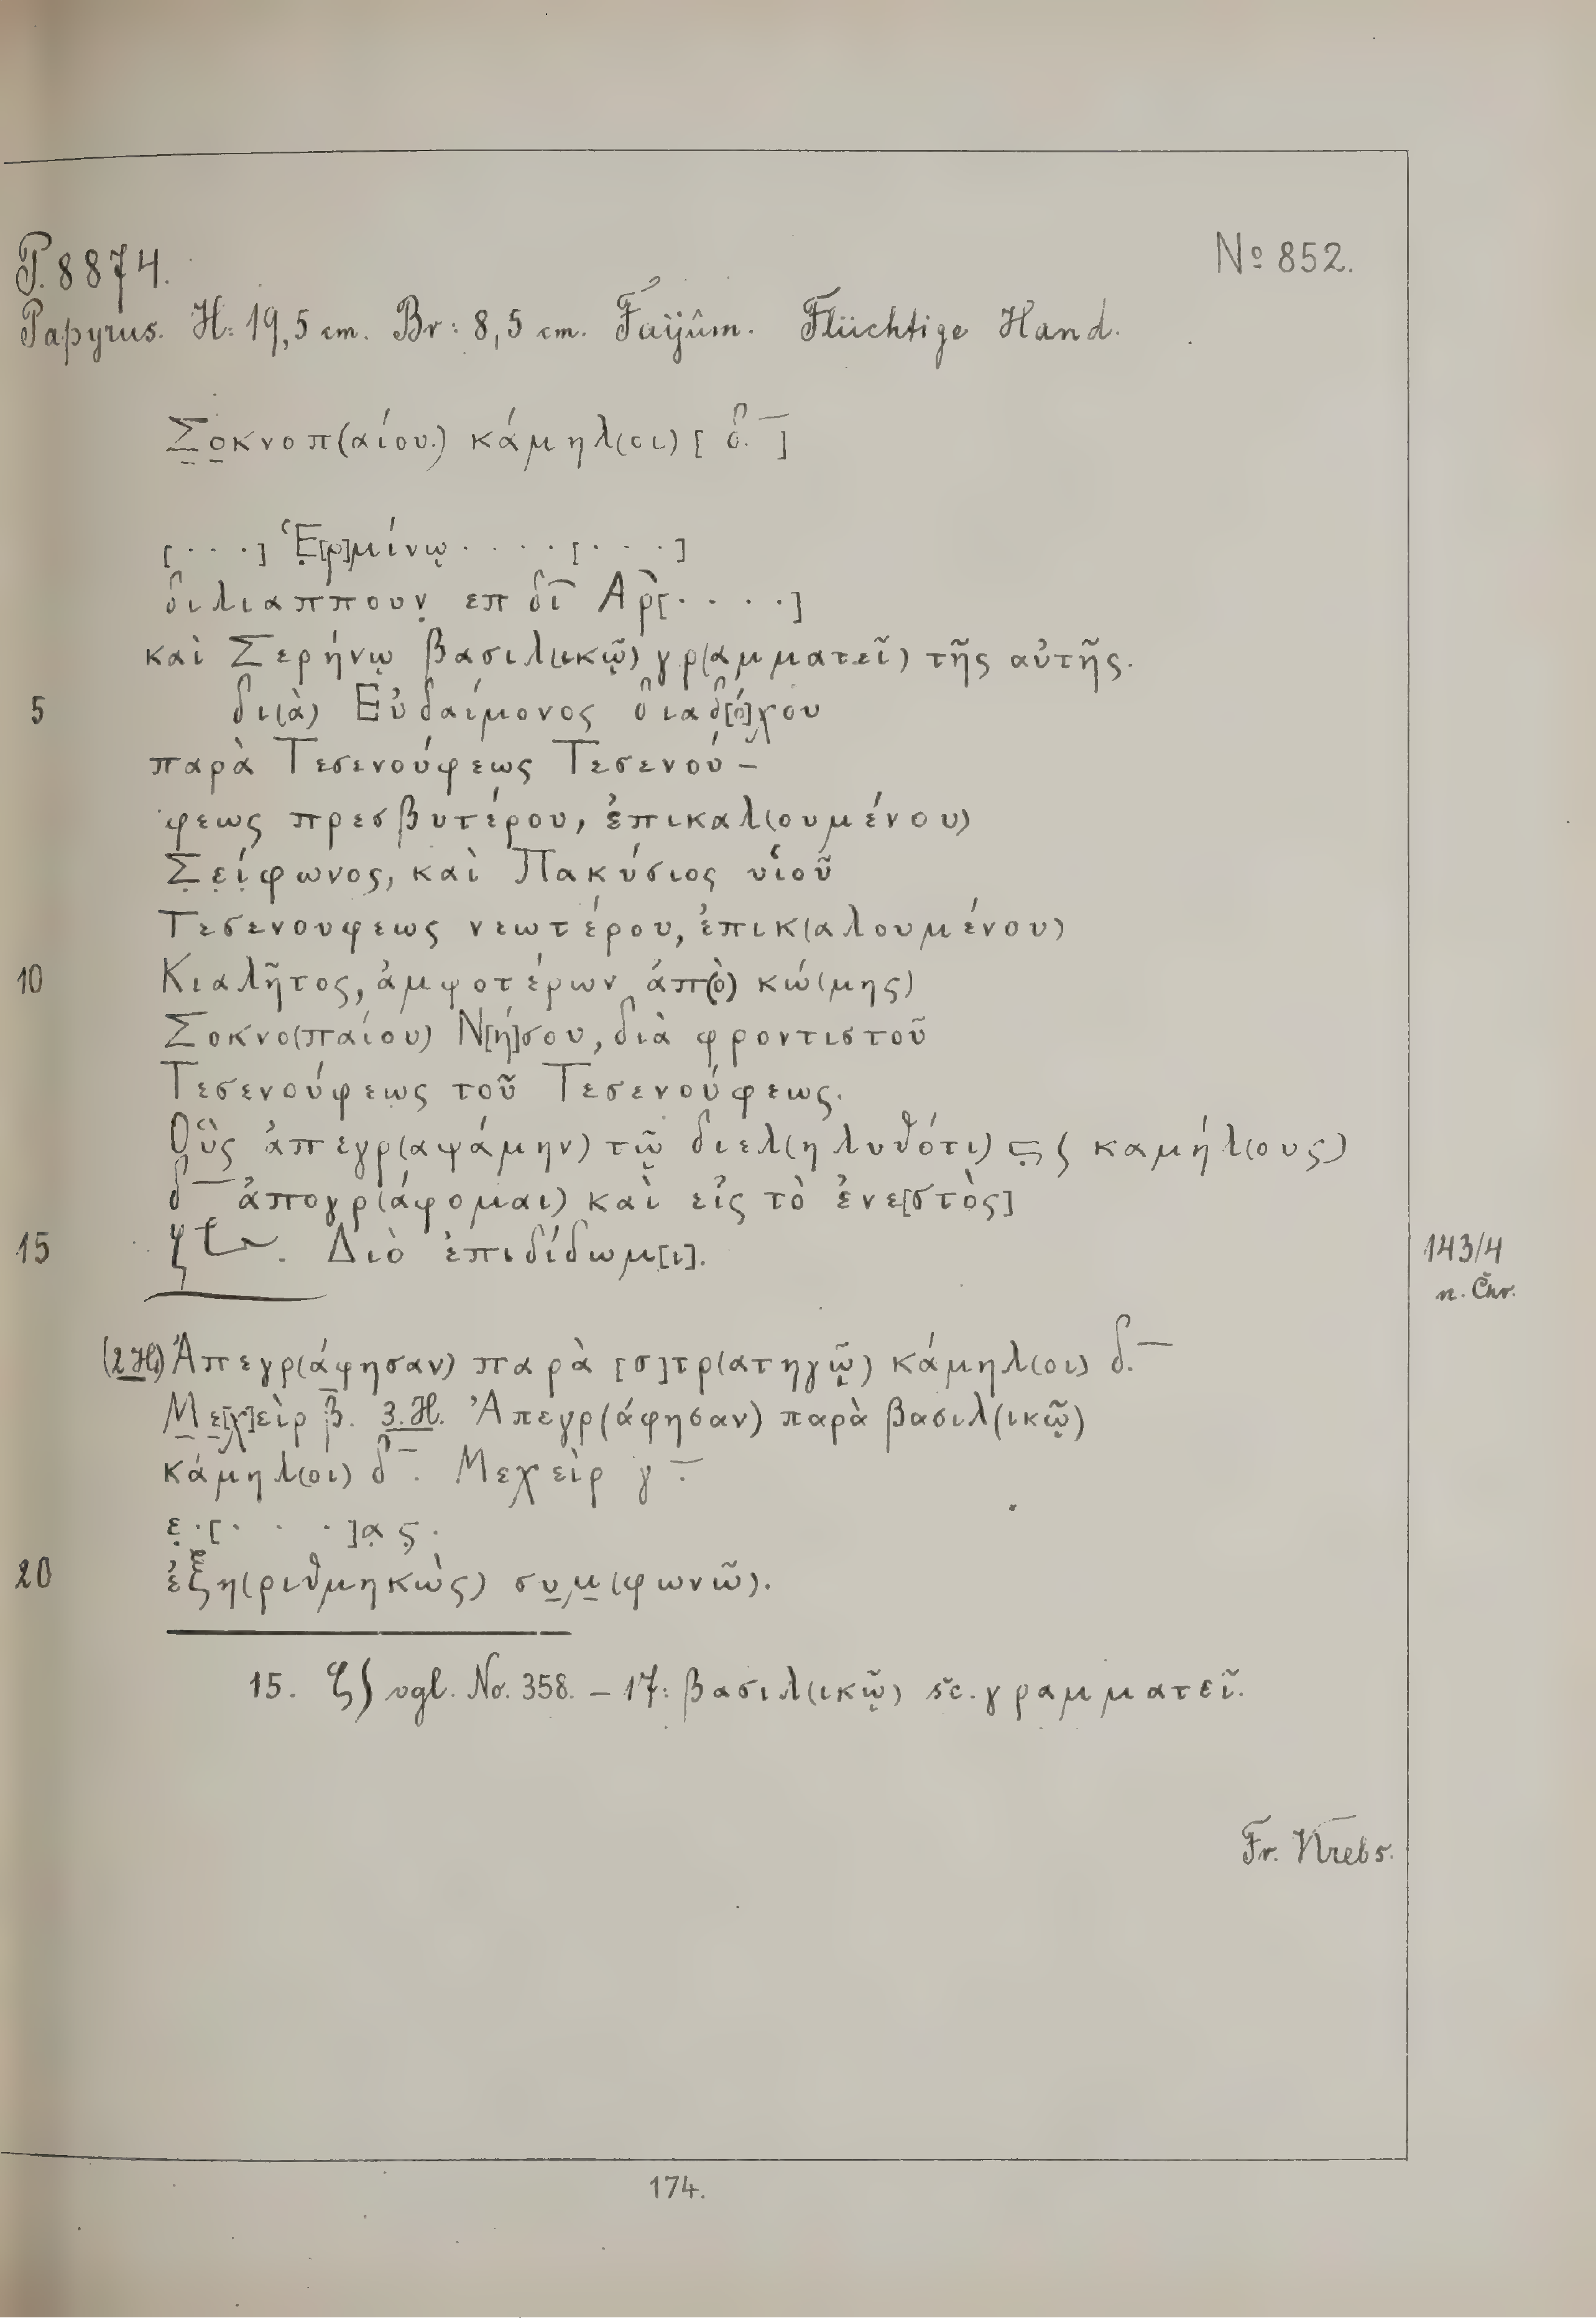 P. 8874.
No 852.
Papyrus. H: 19,5 cm. Br: 8,5 cm. Faijûm. Flüchtige Hand.
Σ̣ο̣κνοπ(αίου) κάμηλ(οι) [δ̣¯]
[· · ·] Ἑ̣[ρ]μίνῳ · · · · [· · ·]
διλιαππουν̣ επ δι̅ Αρ̀[· · · ·]
καὶ Σερήνῳ βασιλ(ικῷ) γρ(αμματεῖ) τῆς αὐτῆς.
5 δι(ὰ) Εὐδαίμονος διαδ[ό]χου
παρὰ Τεσενούφεως Τεσενού-
φεως πρεσβυτέρου, ἐπικαλ(ουμένου)
Σ̣ε̣ί̣φωνος, καὶ Πακύσιος υἱοῦ
Τεσενουφεως νεωτέρου, ἐπικ(αλουμένου)
10 Κιαλῆτος, ἀμφοτέρων ἀπ(ὸ) κώ(μης)
Σοκνο(παίου) Ν[ή]σου, διὰ φροντιστοῦ
Τεσενούφεως τοῦ Τεσενούφεως.
Οὓς ἀπεγρ(αψάμην) τῷ διελ(ηλυθότι) ϛ̣ ( καμήλ(ους)
δ¯ ἀπογρ(άφομαι) καὶ εἰς τὸ ἐνε[στὸς]
15 ζ . Διὸ ἐπιδίδωμ[ι].
143/4
n. Chr.
(2 H.) Ἀπεγρ(άφησαν) παρὰ [σ]τρ(ατηγῷ) κάμηλ(οι) δ.¯
Μ̣ε̣[χ]εὶρ β̅. 3. H. Ἀπεγρ(άφησαν) παρὰ βασιλ(ικῷ)
κάμηλ(οι) δ¯. Μεχεὶρ γ¯.
ε̣ · [· · ·]α̣ ς̣ ·
20 ἐξη(ριθμηκὼς) συ̣μ̣(φωνῶ).
15. ζ ∫ vgl. No. 358. – 17: βασιλ(ικῷ) sc. γραμματεῖ.
Fr. Krebs.
174.